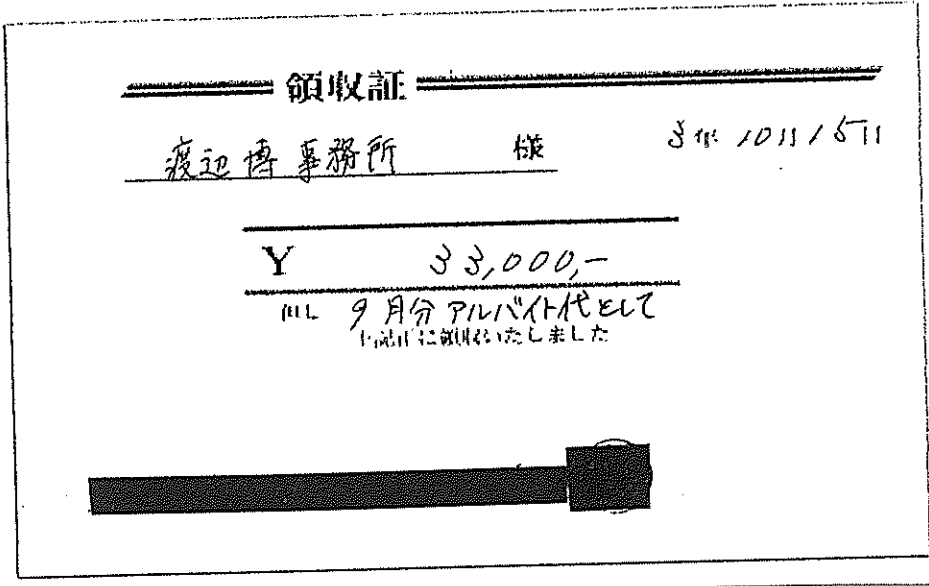 領収証
渡辺博事務所 様 3年10月15日
Y 33,000,-
但し 9月分アルバイト代として
上記正に領収いたしました